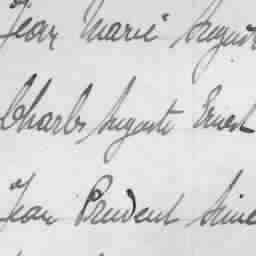 Jean Marie August
Charles Auguste Ernest
Jean Prudent Aimé